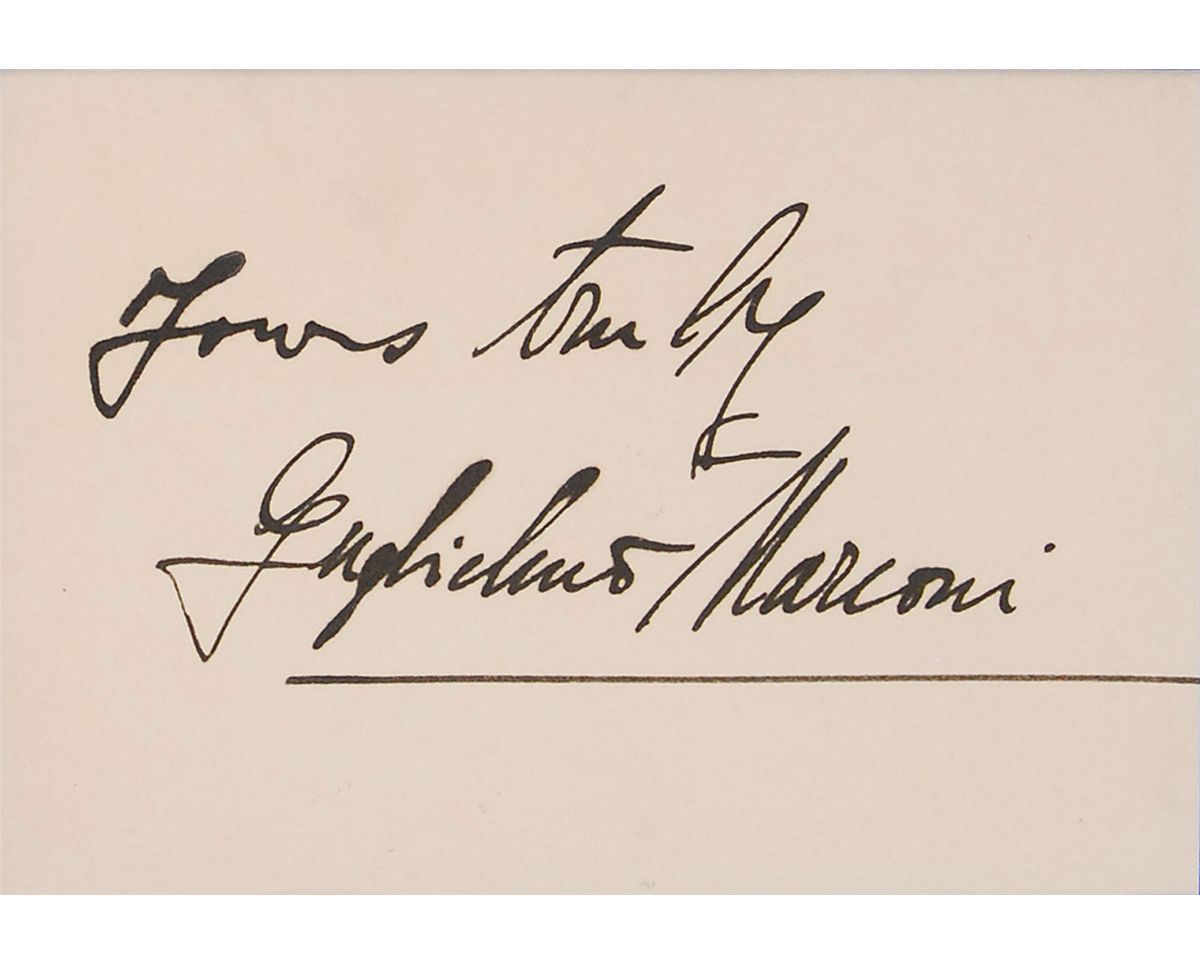 Yours truly
Guglielmo Marconi